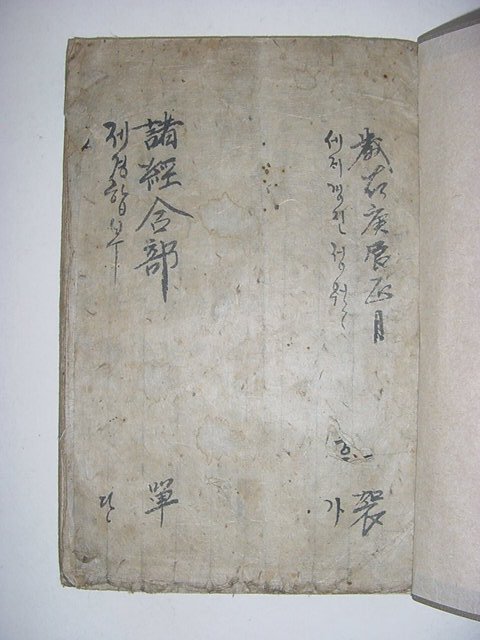 歲在庚辰正月
袈
세재경진정월
가
諸經合部
單
제경합부
단